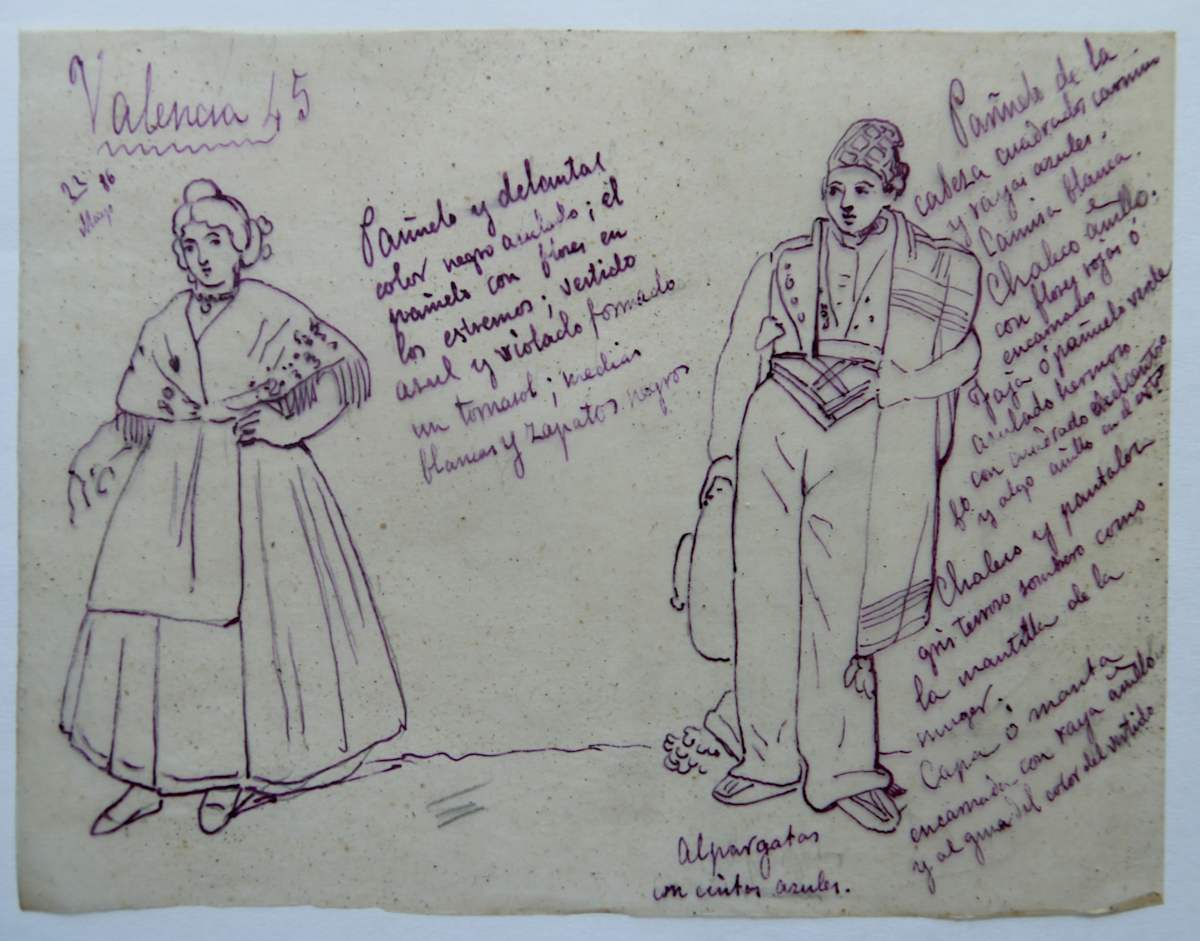 Valencia 45
22 86
Mayo
Pañuelo y delantal
color negro azulado; el
pañuelo con flores en
los estremos; vestido
azul y violado formado
un tornasol; medias
blancas y zapatos negros
Pañuelo de la
cabeza cuadrados carmin
y rayas azules.
Camisa blanca.
Chaleco
con flores rojas ó
encarnadas
Faja ó pañuelo verde
azulado hermoso
con cuadrado
y algo
Chaleco y pantalon
gris terroso sombrero como
la mantilla de la
muger.
Capa ó manta
encarnada con raya
y alguna del color del vestido
Alpargatas
con cintas azules.